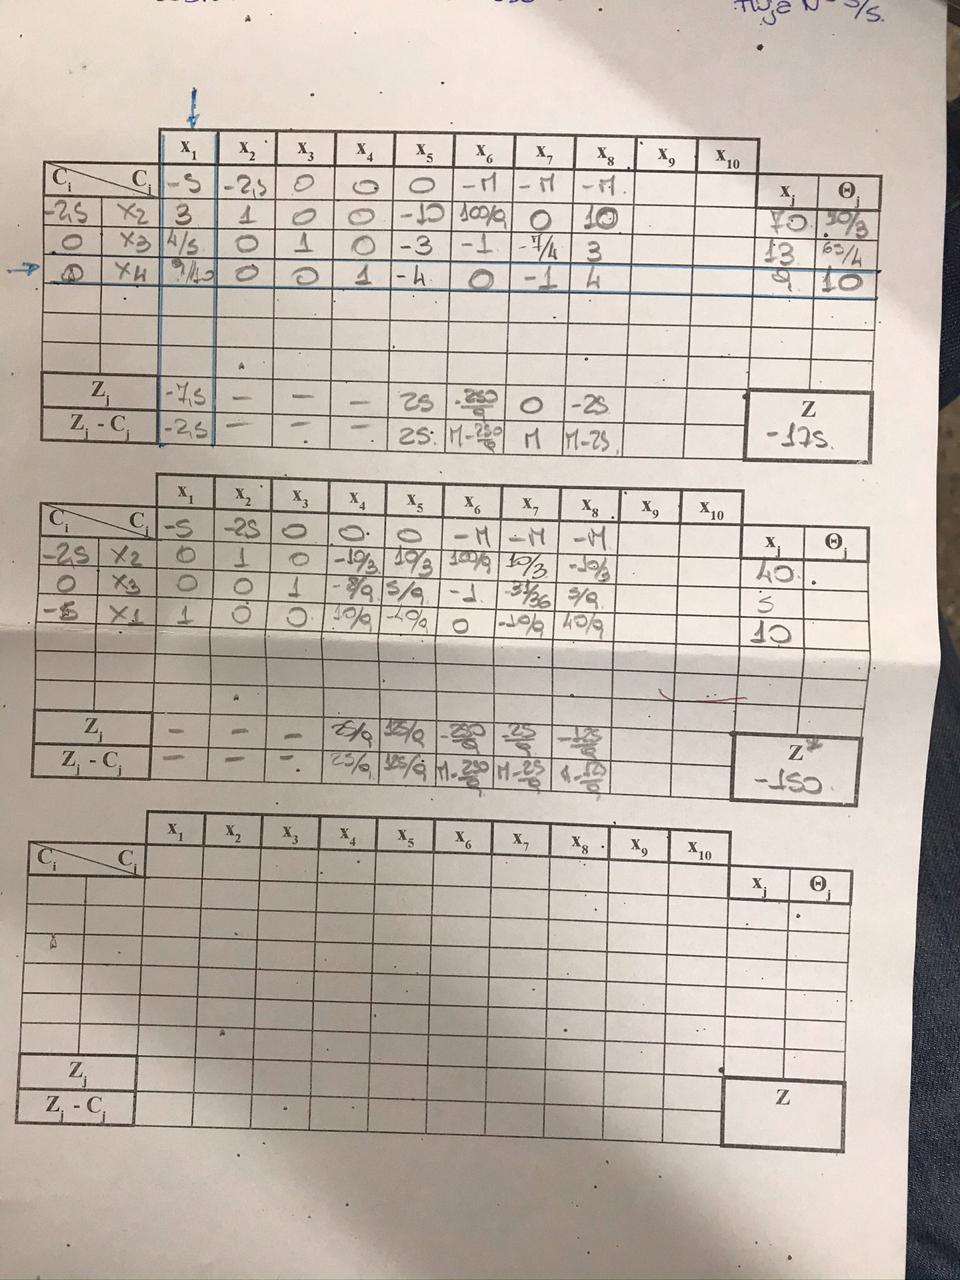 x1 x2 x3 x4 x5 x6 x7 x8 x9 x10
Ci Ci -5 -2,5 0 0 0 -M -M -M xj Θj
-2,5 x2 3 1 0 0 -10 100/9 0 10 70
0 x3 4/5 0 1 0 -3 -1 -7/4 3 13 65/4
0 x4 9/10 0 0 1 -4 0 -1 4 9 10
Zj -7,5 - - - 25 -250/9 0 -25 Z
Zj - Cj -2,5 - - - 25 M-250/9 M M-25 -175
x1 x2 x3 x4 x5 x6 x7 x8 x9 x10
Ci Ci -5 -25 0 0 0 -M -M -M xj Θj
-2,5 x2 0 1 0 -10/3 10/3 100/9 10/3 -10/3 40
0 x3 0 0 1 -8/9 5/9 -1 -31/36 5/9 5
-5 x1 1 0 0 10/9 -40/9 0 -10/9 40/9 10
Zj - - - 25/9 125/9 -250/9 -25/9 -125/9 Z*
Zj - Cj - - - 25/9 125/9 M-250/9 M-25/9 M-125/9 -150
x1 x2 x3 x4 x5 x6 x7 x8 x9 x10
Ci Ci xj Θj
Zj Z
Zj - Cj